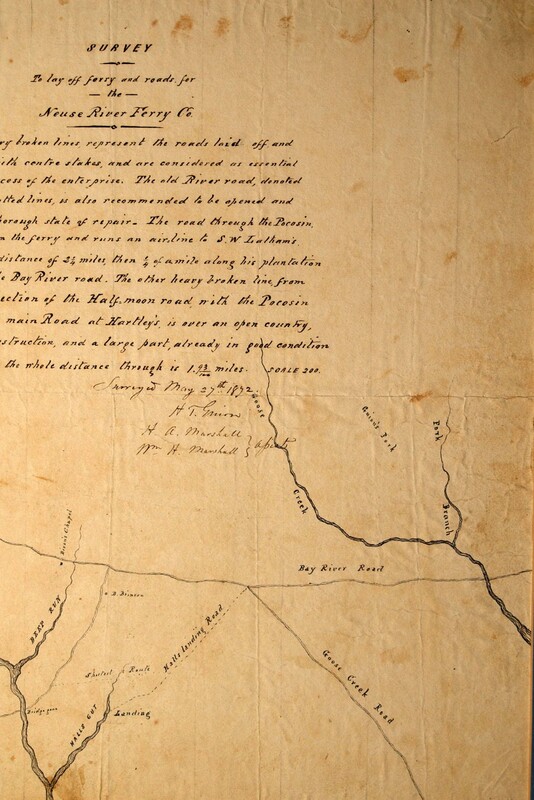 SURVEY
To lay off ferry and roads for
— the —
Neuse River Ferry Co.
ry broken lines, represent the roads laid off and
ith centre stakes, and are considered as essential
cess of the enterprise. The old River road, denoted
tted lines, is also recommended to be opened and
horough state of repair. The road through the Pocosin,
the ferry and runs an airline to S.W. Latham's
distance of 2¼ miles, then ¼ of a mile along his plantation
e Bay River road. The other heavy broken line, from
ection of the Half-moon road with the Pocosin
main Road at Hartley's, is over an open country,
struction, and a large part already in good condition
the whole distance through is 1 93/100 miles. SCALE 200.
Surveyed May 27th 1872.
H. A. Marshall
Wm H. Marshall
Goose
Creek
Fork
Park
Branch
Bay River Road
Chapel
DEEP RUN
Halls Landing Road
Route
HALLS GUT
Landing
Goose Creek Road
Bridge gone